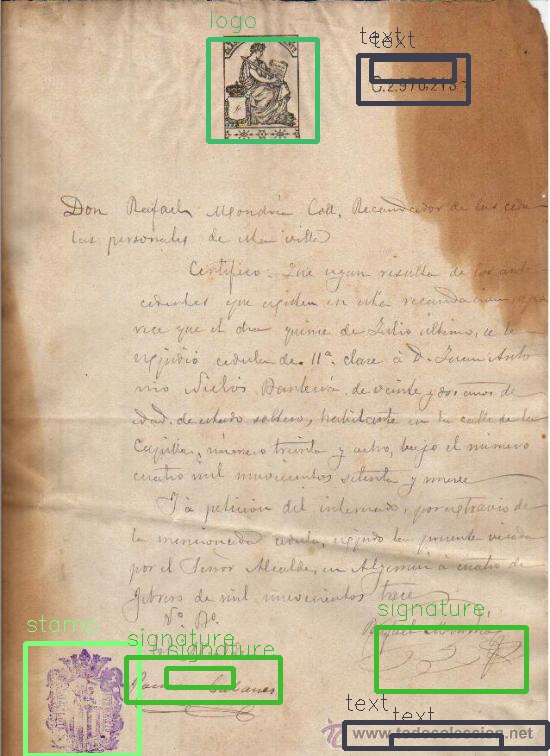 C.2.970,213
Don Rafael Mondría Coll, Recaudador de las cédu
las personales de esta villa
Certifico: Que según resulta de los ante
cedentes que existen en esta recaudación, apa
rece que el día quince de Julio último, se le
expidió cédula de 11ª clase á D. Juan Anto
nio de veinte y dos años de
edad, de estado soltero, habitante en la calle de la
Capilla, número treinta y ocho, bajo el número
cuatro mil novecientos setenta y nueve
Y á petición del interesado, por extravío de
la mencionada cédula, expido la presente visada
por el Señor Alcalde, en Algemesí á cuatro de
Febrero de mil novecientos trece
Vº Bº
Rafael Mondría
Cabanes
www.todocoleccion.net